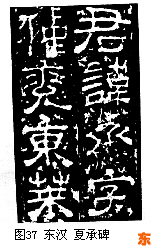 君諱承字
仲兗東萊
图37 东汉 夏承碑
东